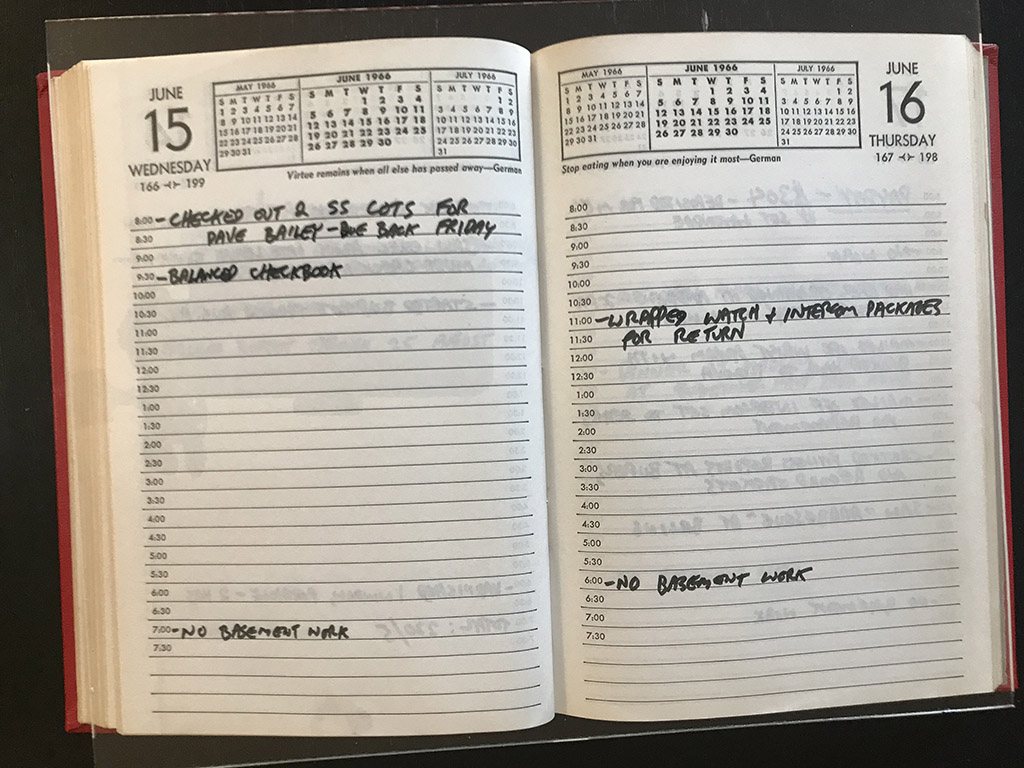 JUNE
15
WEDNESDAY
166 ⊰⊱ 199
MAY 1966
S M T W T F S
1 2 3 4 5 6 7
8 9 10 11 12 13 14
15 16 17 18 19 20 21
22 23 24 25 26 27 28
29 30 31
JUNE 1966
S M T W T F S
1 2 3 4
5 6 7 8 9 10 11
12 13 14 15 16 17 18
19 20 21 22 23 24 25
26 27 28 29 30
JULY 1966
S M T W T F S
1 2
3 4 5 6 7 8 9
10 11 12 13 14 15 16
17 18 19 20 21 22 23
24 25 26 27 28 29 30
31
Virtue remains when all else has passed away—German
8:00 – CHECKED OUT 2 SS COTS FOR
8:30 DAVE BAILEY – DUE BACK FRIDAY
9:00
9:30 – BALANCED CHECKBOOK
10:00
10:30
11:00
11:30
12:00
12:30
1:00
1:30
2:00
2:30
3:00
3:30
4:00
4:30
5:00
5:30
6:00
6:30
7:00 – NO BASEMENT WORK
7:30
MAY 1966
S M T W T F S
1 2 3 4 5 6 7
8 9 10 11 12 13 14
15 16 17 18 19 20 21
22 23 24 25 26 27 28
29 30 31
JUNE 1966
S M T W T F S
1 2 3 4
5 6 7 8 9 10 11
12 13 14 15 16 17 18
19 20 21 22 23 24 25
26 27 28 29 30
JULY 1966
S M T W T F S
1 2
3 4 5 6 7 8 9
10 11 12 13 14 15 16
17 18 19 20 21 22 23
24 25 26 27 28 29 30
31
JUNE
16
THURSDAY
167 ⊰⊱ 198
Stop eating when you are enjoying it most—German
8:00
8:30
9:00
9:30
10:00
10:30
11:00 – WRAPPED WATCH + INTERCOM PACKAGES
11:30 FOR RETURN
12:00
12:30
1:00
1:30
2:00
2:30
3:00
3:30
4:00
4:30
5:00
5:30
6:00 – NO BASEMENT WORK
6:30
7:00
7:30